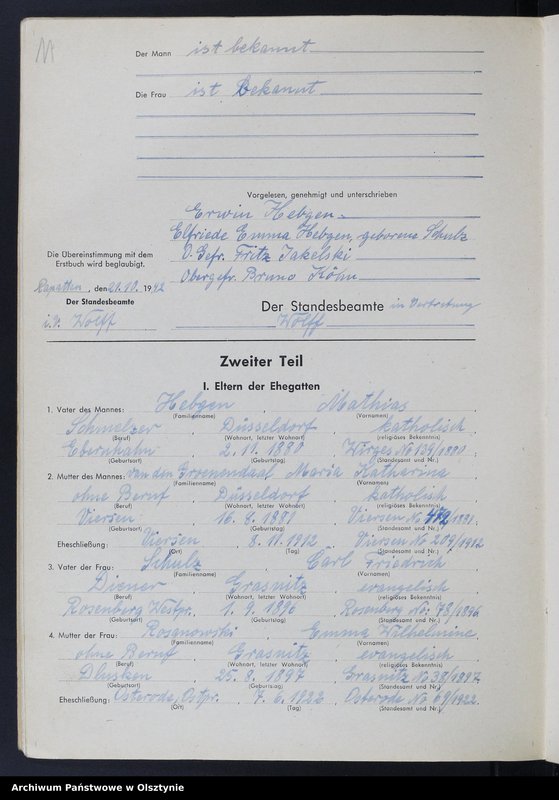 11
Der Mann ist bekannt
Die Frau ist bekannt
Vorgelesen, genehmigt und unterschrieben
Erwin Hebgen
Elfriede Emma Hebgen, geborene Schulz
O. Gefr. Fritz Jakelski
Obergefr. Bruno Köhn
Die Übereinstimmung mit dem
Erstbuch wird beglaubigt.
Rapatten, den 21.10. 1942
Der Standesbeamte
i.V. Wolff
Der Standesbeamte in Vertretung
Wolff
Zweiter Teil
I. Eltern der Ehegatten
1. Vater des Mannes: Hebgen, Mathias
(Familienname) (Vornamen)
Schmelzer, Düsseldorf, katholisch
(Beruf) (Wohnort, letzter Wohnort) (religiöses Bekenntnis)
Ebernhahn, 2.11.1880, Wirges No 139/1880
(Geburtsort) (Geburtstag) (Standesamt und Nr.)
2. Mutter des Mannes: van den Groenendaal Maria Katharina
(Familienname) (Vornamen)
ohne Beruf, Düsseldorf, katholisch
(Beruf) (Wohnort, letzter Wohnort) (religiöses Bekenntnis)
Viersen, 16.8.1881, Viersen No 412/1881
(Geburtsort) (Geburtstag) (Standesamt und Nr.)
Eheschließung: Viersen, 8.11.1912, Viersen No 209/1912
(Ort) (Tag) (Standesamt und Nr.)
3. Vater der Frau: Schulz, Carl Friedrich
(Familienname) (Vornamen)
Diener, Grasnitz, evangelisch
(Beruf) (Wohnort, letzter Wohnort) (religiöses Bekenntnis)
Rosenberg Westpr., 1.9.1896, Rosenberg No: 78/1896
(Geburtsort) (Geburtstag) (Standesamt und Nr.)
4. Mutter der Frau: Rosanowski, Emma Wilhelmine
(Familienname) (Vornamen)
ohne Beruf, Grasnitz, evangelisch
(Beruf) (Wohnort, letzter Wohnort) (religiöses Bekenntnis)
Dlusken, 25.8.1897, Grasnitz No 38/1897
(Geburtsort) (Geburtstag) (Standesamt und Nr.)
Eheschließung: Osterode, Ostpr., 7.6.1922, Osterode No 69/1922.
(Ort) (Tag) (Standesamt und Nr.)
Archiwum Państwowe w Olsztynie